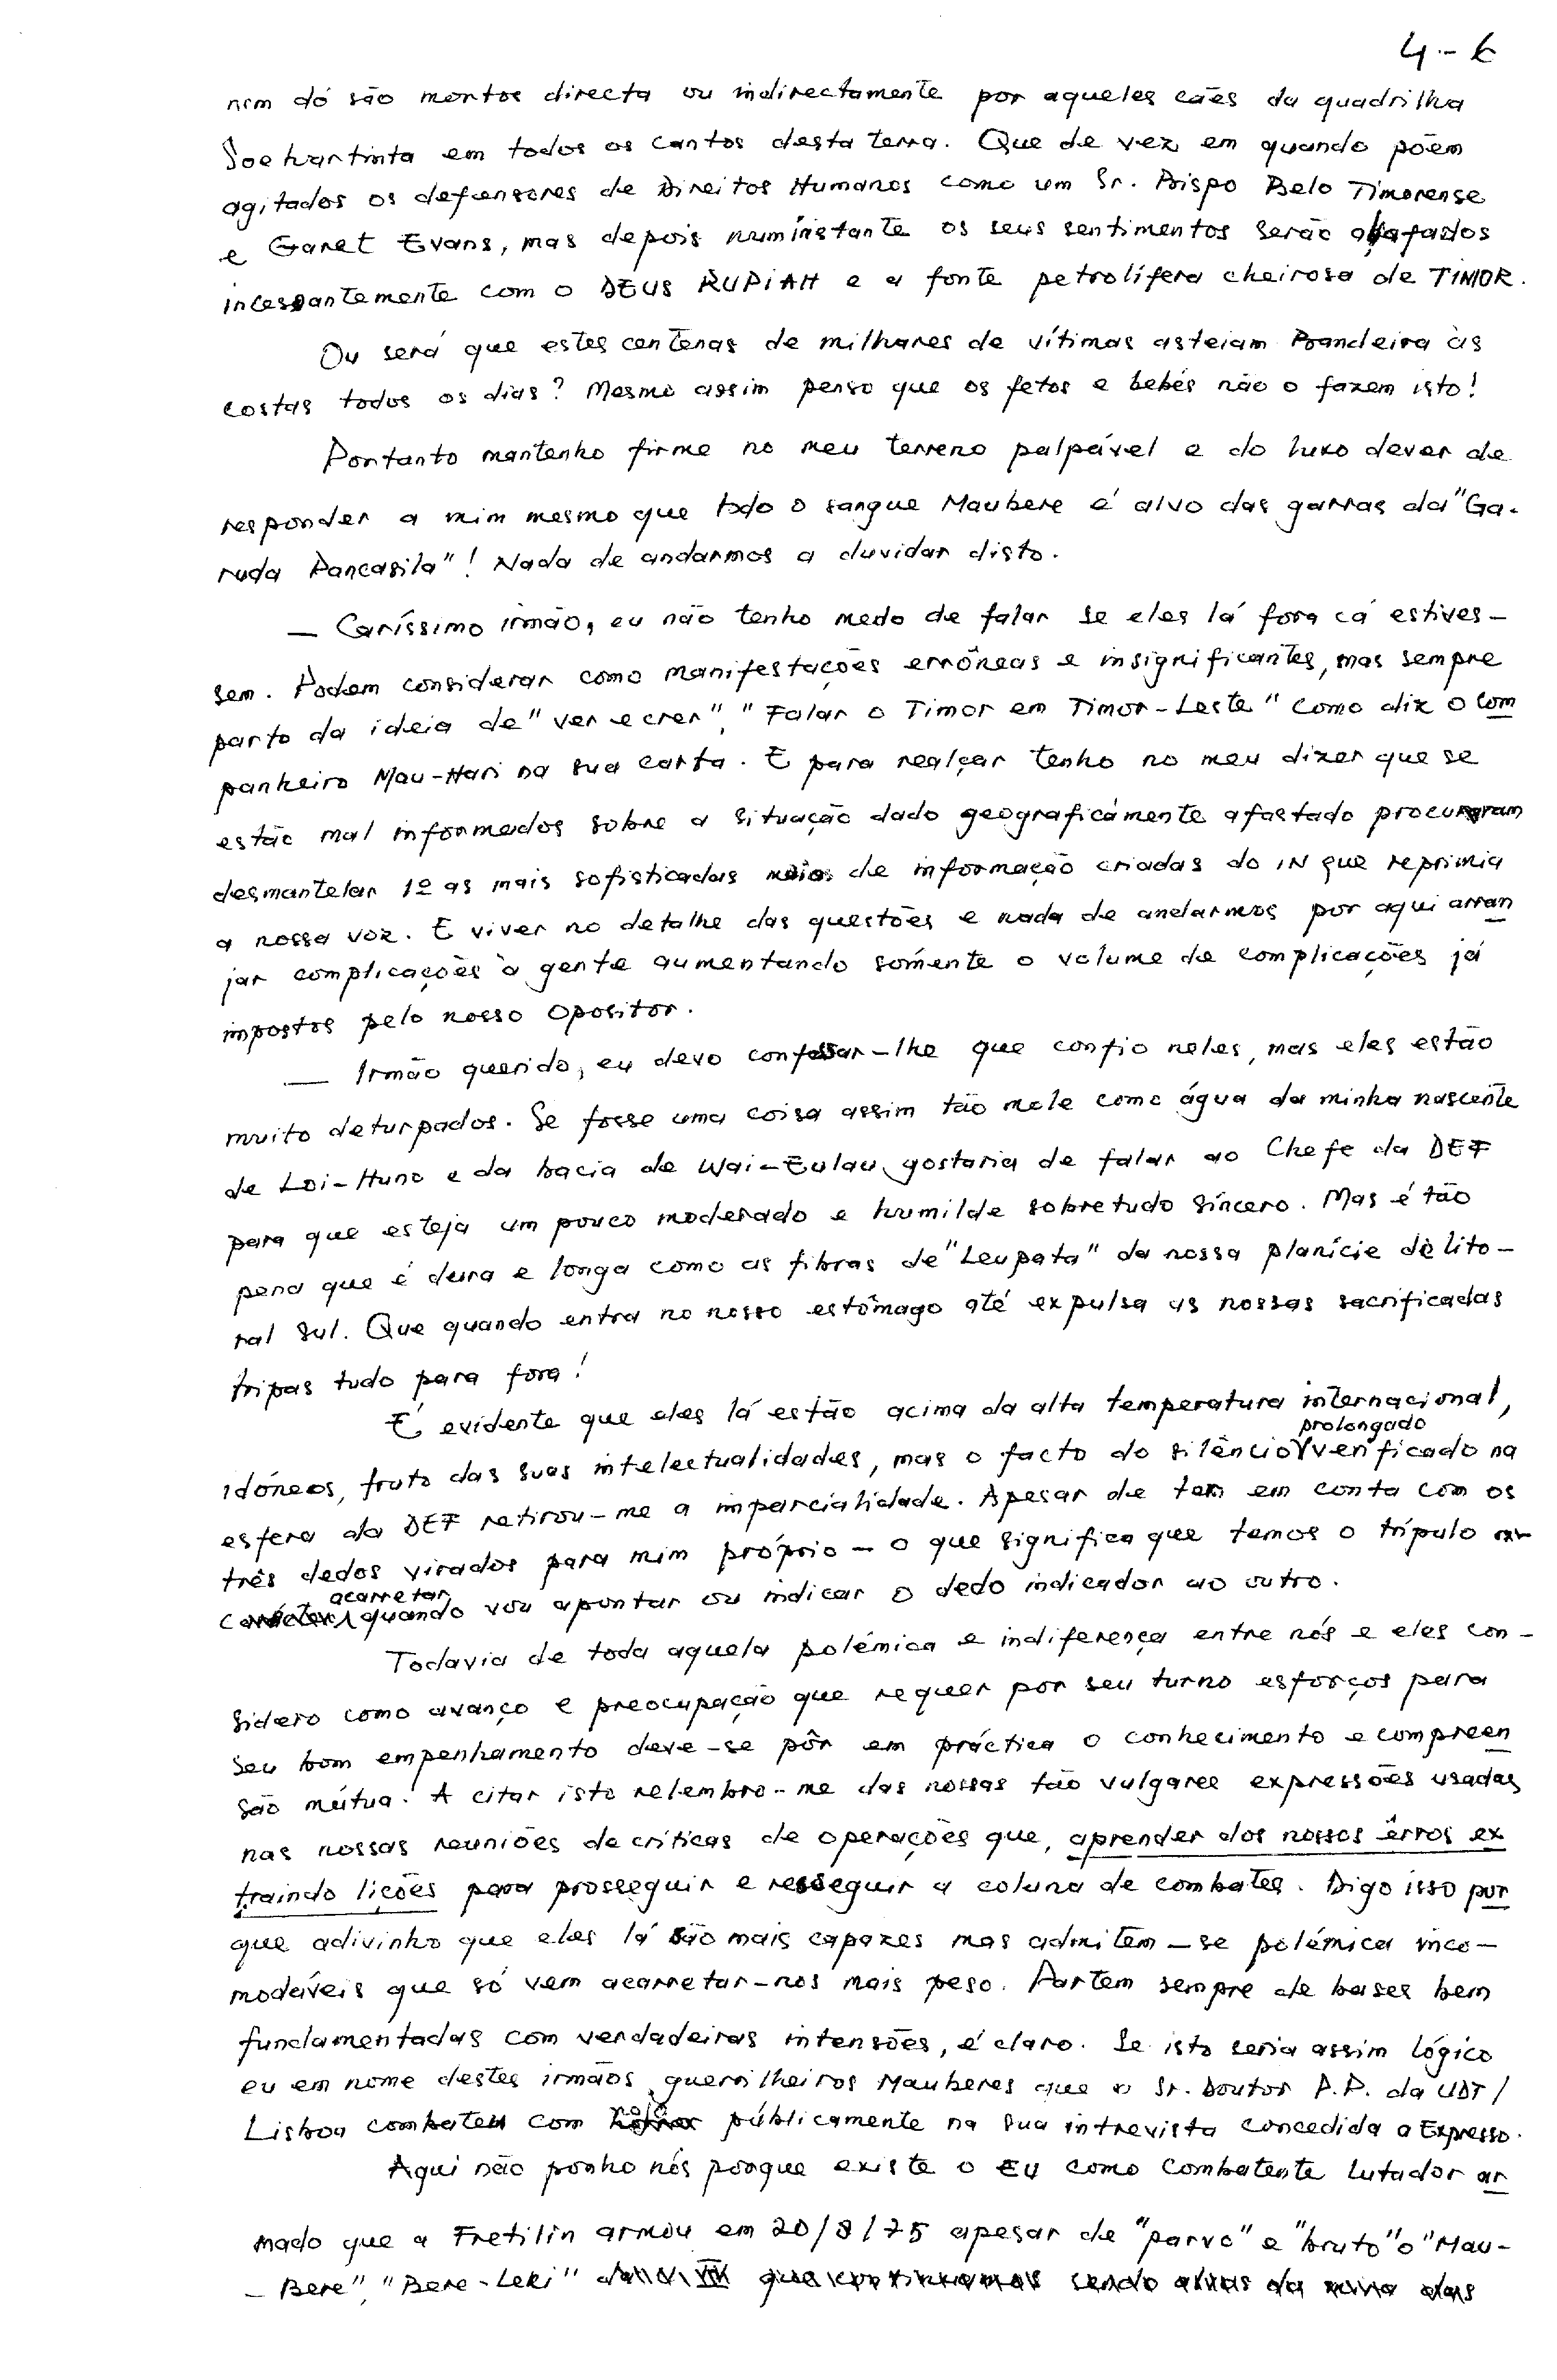 4-6
nem dó são mortos directa ou indirectamente por aqueles cães da quadrilha
Soehartinta em todos os cantos desta terra. Que de vez em quando põem
agitados os defensores de Direitos Humanos como um Sr. Bispo Belo Timorense
e Garet Evans, mas depois numinstante os seus sentimentos serão afastos
incessantemente com o DEUS RUPIAH e a fonte petrolífera cheirosa de TIMOR.
Ou será que estes centenas de milhares de vítimas asteiam Bandeira às
costas todos os dias? Mesmo assim penso que os fetos e bebés não o fazem isto!
Portanto mantenho firme no meu terreno palpável e do luxo dever de
responder a mim mesmo que todo o sangue Maubere é alvo das garras da "Ga-
ruda Pancasila"! Nada de andarmos a duvidar disto.
— Caríssimo irmão, eu não tenho medo de falar se eles lá fora cá estives-
sem. Podem considerar como manifestações errôneas e insignificantes, mas sempre
parto da ideia de "ver e crer", "Falar o Timor em Timor-Leste" como diz o com
panheiro Mau-Hari na sua carta. E para realçar tenho no meu dizer que se
estão mal informados sobre a situação dado geograficámente afastado procuraram
desmantelar 1º as mais sofisticadas de informação criadas do IN que reprimia
a nossa voz. E viver no detalhe das questões e nada de andarmos por aqui arran
jar complicações à gente aumentando sómente o volume de complicações já
impostos pelo nosso Opositor.
— Irmão querido, eu devo confessar-lhe que confio neles, mas eles estão
muito deturpados. Se fosse uma coisa assim tão mole como água da minha nascente
de Loi-Huno e da bacia de Wai-Eulau, gostaria de falar ao Chefe da DEF
para que esteja um pouco moderado e humilde sobretudo síncero. Mas é tão
pena que é dura e longa como as fibras de "Leupata" da nossa planície de lito-
ral Sul. Que quando entra no nosso estômago até expulsa as nossas sacrificadas
tripas tudo para fora!
É evidente que eles lá estão acima da alta temperatura internacional,
prolongado
idóneos, fruto das suas intelectualidades, mas o facto do silêncio verificado na
esfera da DEF retirou-me a imparcialidade. Apesar de tem em conta com os
três dedos virados para mim próprio - o que significa que temos o trípulo
acarretar
quando vou apontar ou indicar o dedo indicador ao outro.
Todavia de toda aquela polémica e indiferença entre nós e eles con-
sidero como avanço e preocupação que requer por seu turno esforços para
seu bom empenhamento deve-se pôr em práctica o conhecimento e compreen
são mútua. A citar isto relembro-me das nossas tão vulgares expressões usadas
nas nossas reuniões de críticas de operações que, aprender dos nossos êrros ex
traindo lições para prosseguir e resseguir a coluna de combates. Digo isso por
que adivinho que eles lá são mais capazes mas admitem-se polémica inco-
modáveis que só vem acarretar-nos mais peso. Partem sempre de bases bem
fundamentadas com verdadeiras intensões, é claro. Se isto seria assim lógico
eu em nome destes irmãos guerrilheiros Mauberes que o Sr. Doutor P.P. da UDT/
Lisboa combateu com públicamente na sua intrevista concedida a Expresso.
Aqui não ponho nós porque existe o EU como combatente lutador ar
mado que a Fretilin armou em 20/8/75 apesar de "parvo" e "bruto" o "Mau-
-Bere", "Bere-Leki"